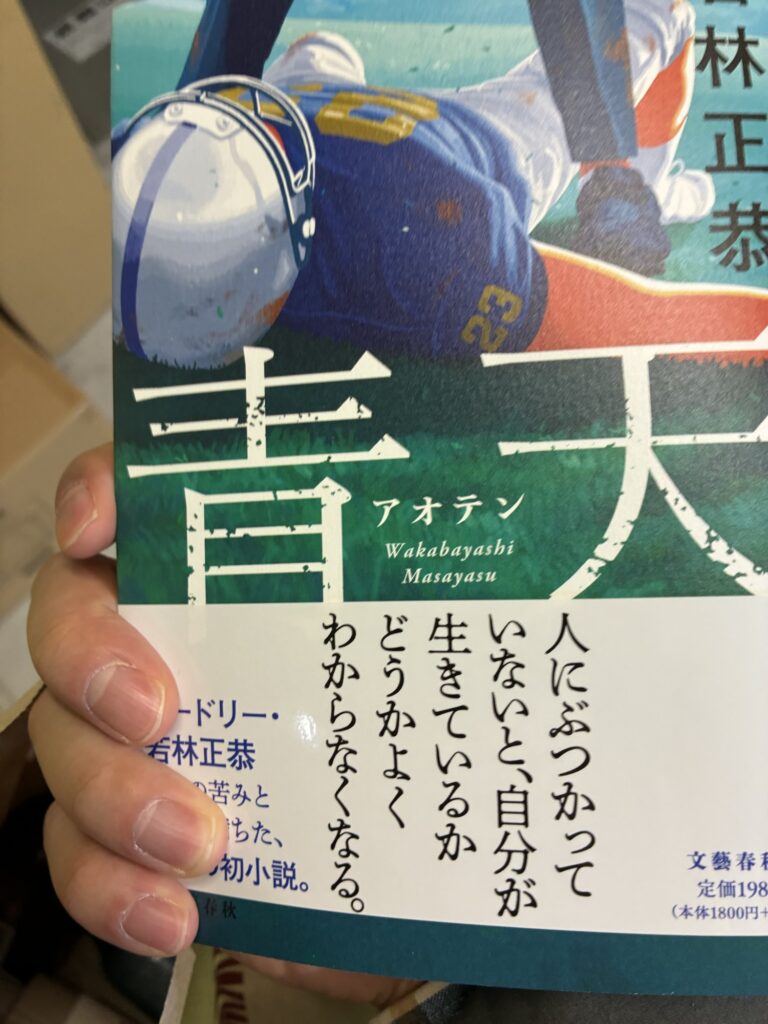 林正恭
23
青天
アオテン
Wakabayashi
Masayasu
人にぶつかって
いないと、自分が
生きているか
どうかよく
わからなくなる。
ードリー・
若林正恭
の苦みと
ちた、
初小説。
文藝春
定価198
(本体1800円+
春秋